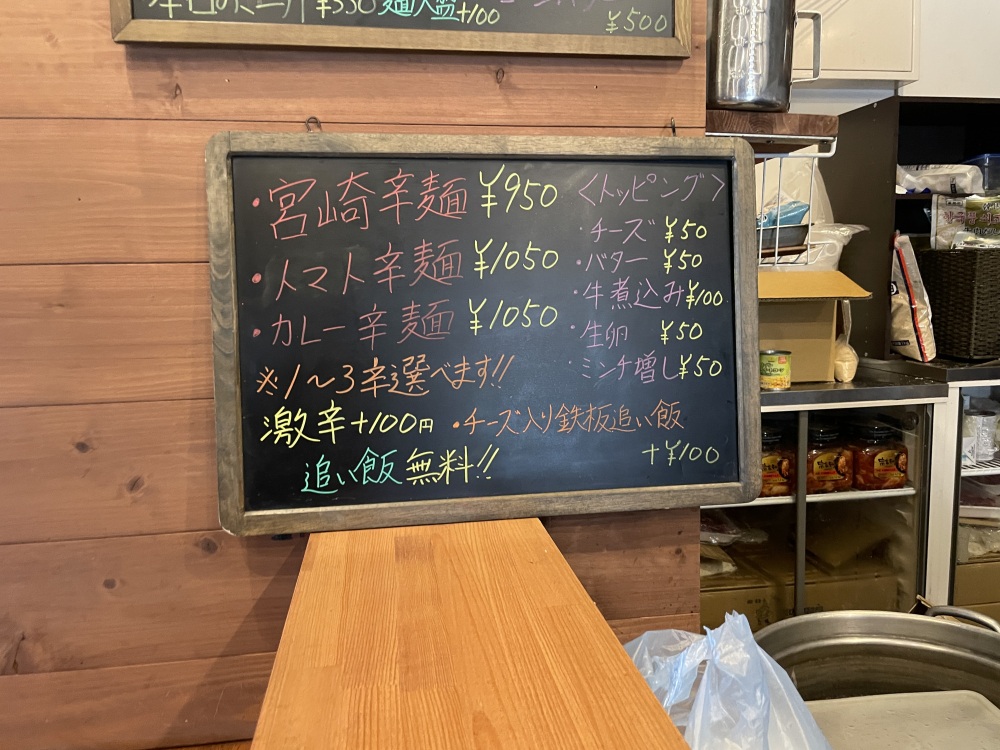 ¥350 麺大盛+100
¥500
・宮崎辛麺 ¥950
・トマト辛麺 ¥1050
・カレー辛麺 ¥1050
※1〜3辛選べます!!
激辛+100円
追い飯無料!!
<トッピング>
・チーズ ¥50
・バター ¥50
・牛煮込み ¥100
・生卵 ¥50
・ミンチ増し ¥50
・チーズ入り鉄板追い飯
+¥100